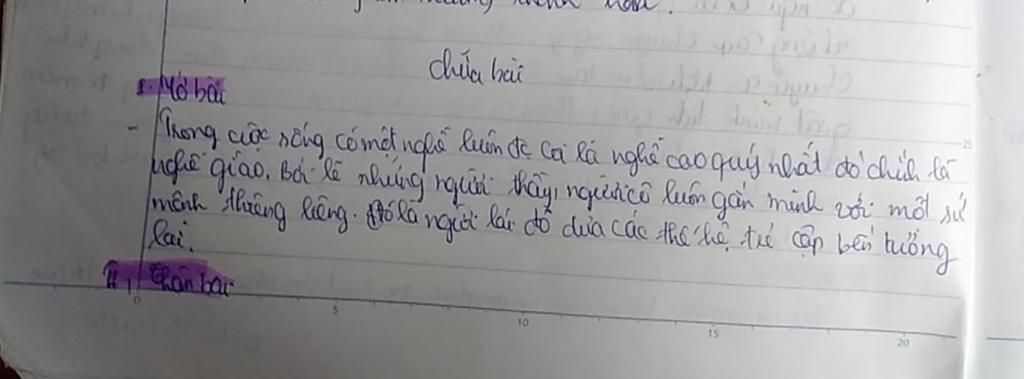 chữa bài
I. Mở bài
- Trong cuộc sống có một nghề luôn đc coi là nghề cao quý nhất đó chính là
nghề giáo. Bởi lẽ những người thầy, người cô luôn gắn mình với một sứ
mệnh thiêng liêng. Đó là người lái đò đưa các thế hệ trẻ cập bến tương
lai.
II, Thân bài
0 5 10 15 20
25